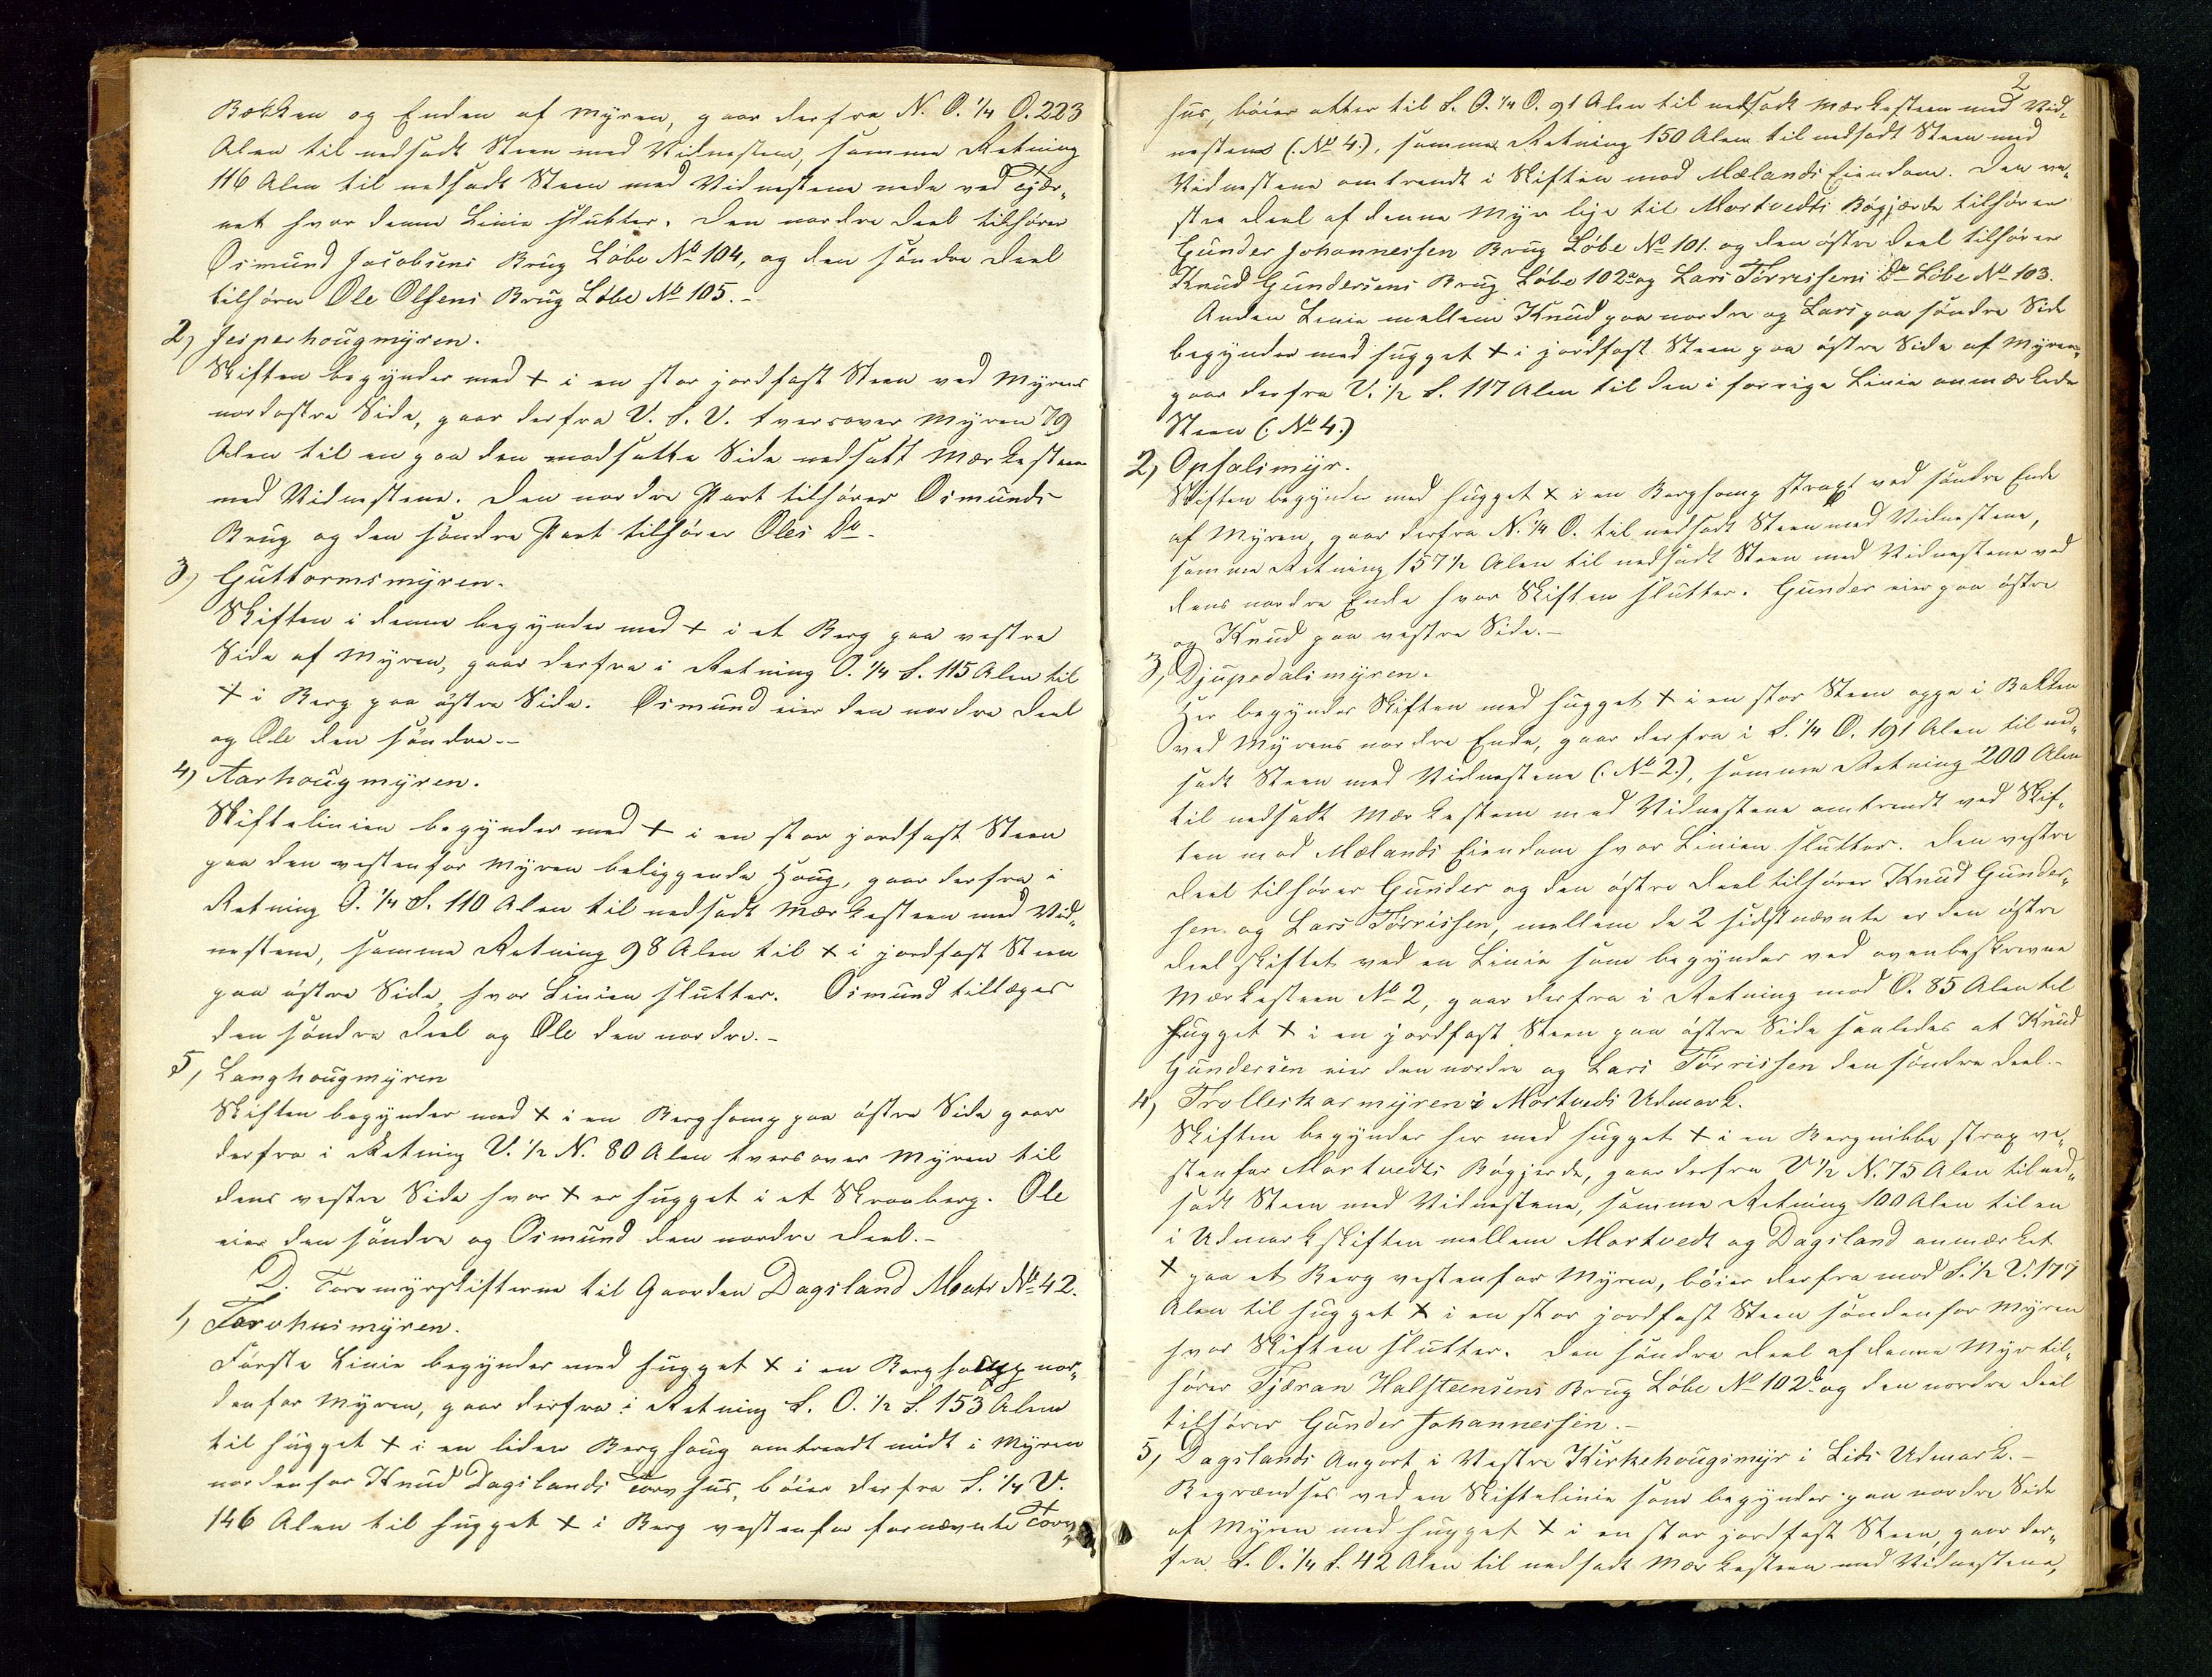 Bækken og Enden af Myren, gaar derfra N. O. 1/4 O. 223
Alen til nedsadt Steen med Vidnesteen, samme Retning
116 Alen til nedsadt Steen med Vidnestene nede ved Tjær„
net hvor denne Linie slutter. Den nordre Deel tilhører
Osmund Jacobsens Brug Løbe No 104, og den søndre Deel
tilhører Ole Olsens Brug Løbe No 105.-
2) Jesperhougmyren.
Skiften begynder med + i en stor jordfast Steen ved Myrens
nordøstre Side, gaar derfra V. S. V. tversover Myren 79
Alen til en paa den modsatte Side nedsatt Mærkesteen
med Vidnestene. Den nordre Part tilhører Osmunds
Brug og den søndre Part tilhører Oles Do-
3) Guttormsmyren.
Skiften i denne begynder med + i et Berg paa vestre
Side af Myren, gaar derfra i Retning O. 1/4 S. 115 Alen til
+ i Berg paa østre Side. Osmund eier den nordre Deel
og Ole den søndre.-
4) Aarhougmyren.
Skiftelinien begynder med + i en stor jordfast Steen
paa den vestenfor Myren beliggende Houg, gaar derfra i
Retning O. 1/4 S. 110 Alen til nedsadt Mærkesteen med Vid„
nestene, samme Retning 98 Alen til + i jordfast Steen
paa østre Side, hvor Linien slutter. Osmund tillægges
den søndre Deel og Ole den nordre.-
5, Langhougmyren
Skiften begynder med + i en Berghoug paa østre Side gaar
derfra i Retning V. 1/2 N. 80 Alen tversover Myren til
dens vestre Side hvor + er hugget i et Skraaberg. Ole
eier den søndre og Osmund den nordre Deel.-
D. Torvmyrskifterne til Gaarden Dagsland Matr No 42.
1) Torvhusmyren.
Første Linie begynder med hugget + i en Berghoug nor„
denfor Myren, gaar derfra i Retning S. O. 1/2 S. 153 Alen
til hugget + i en liden Berghoug omtrendt midt i Myren
nordenfor Knud Dagslands Torvhus, bøier derfra S. 1/4 V.
146 Alen til hugget + i Berg vestenfor fornævnte Torv„
2
hus, bøier atter til S. O. 1/4 O. 91 Alen til nedsadt Mærkesteen med Vid„
nestene (: No 4:), samme Retning 150 Alen til nedsadt Steen med
Vidnestene omtrendt i Skiften mod Mælands Eiendom. Den ve„
stre Deel af denne Myr lige til Mortvedts Bøgjærde tilhører
Gunder Johannessen Brug Løbe No 101. og den østre Deel tilhører
Knud Gundersens Brug Løbe 102a og Lars Tørressens Do Løbe No 103.
Anden Linie mellem Knud paa nordre og Lars paa søndre Side
begynder med hugget + i jordfast Steen paa østre Side af Myren,
gaar derfra V. 1/2 S. 117 Alen til den i forrige Linie anmærkede
Steen (: No 4:)
2) Opsalsmyr.
Skiften begynder med hugget + i en Berghoug strax ved søndre Ende
af Myren, gaar derfra N. 1/4 O. til nedsadt Steen med Vidnestene,
samme Retning 157 1/2 Alen til nedsadt Steen med Vidnestene ved
dens nordre Ende hvor Skiften slutter. Gunder eier paa østre
og Knud paa vestre Side.-
3, Djupedalsmyren.
Her begynder Skiften med hugget + i en stor Steen oppe i Bakken
ved Myrens nordre Ende, gaar derfra i S. 1/4 O. 191 Alen til ned„
sadt Steen med Vidnestene (: No 2:), samme Retning 200 Alen
til nedsadt Mærkesteen med Vidnestene omtrendt ved Skif„
ten mod Mælands Eiendom hvor Linien slutter. Den vestre
Deel tilhører Gunder og den østre Deel tilhører Knud Gunder„
sen og Lars Tørrissen, mellem de 2 sidstnævnte er den østre
Deel skiftet ved en Linie som begynder ved ovenbeskrevne
Mærkesteen No 2, gaar derfra i Retning mod O. 85 Alen til
hugget + i en jordfast Steen paa østre Side saaledes at Knud
Gundersen eier den nordre og Lars Tørrissen den søndre Deel.-
4, Trolleskarmyren i Mortveds Udmark.
Skiften begynder her med hugget + i en Bergnibbe strax ve„
stenfor Mortvedts Bøgjerde, gaar derfra V 1/2 N. 75 Alen til ned„
sadt Steen med Vidnestene, samme Retning 100 Alen til en
i Udmarkskiften mellem Mortvedt og Dagsland anmærket
+ paa et Berg vestenfor Myren, bøier derfra mod S. 1/2 V. 177
Alen til hugget + i en stor jordfast Steen søndenfor Myren
hvor Skiften slutter. Den søndre Deel af denne Myr til„
hører Tjæran Halsteensens Brug Løbe No 102b og den nordre Deel
tilhører Gunder Johannessen.-
5, Dagslands Anpart i Vestre Kirkehougsmyr i Lids Udmark.-
Begrændses ved en Skiftelinie som begynder paa nordre Side
af Myren med hugget + i en stor jordfast Steen, gaar der„
fra S. O. 1/4 S. 42 Alen til nedsadt Mærkesteen med Vidnestene,